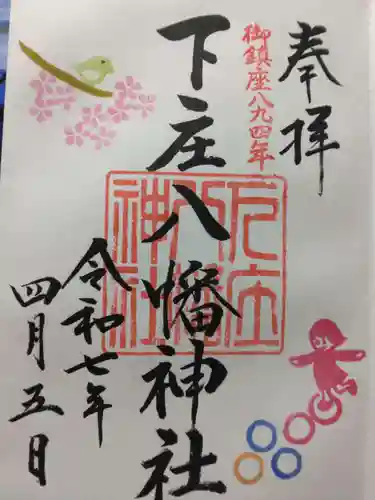 奉拝
御鎮座八九四年
下庄八幡神社
下庄八幡神社
令和七年
四月五日